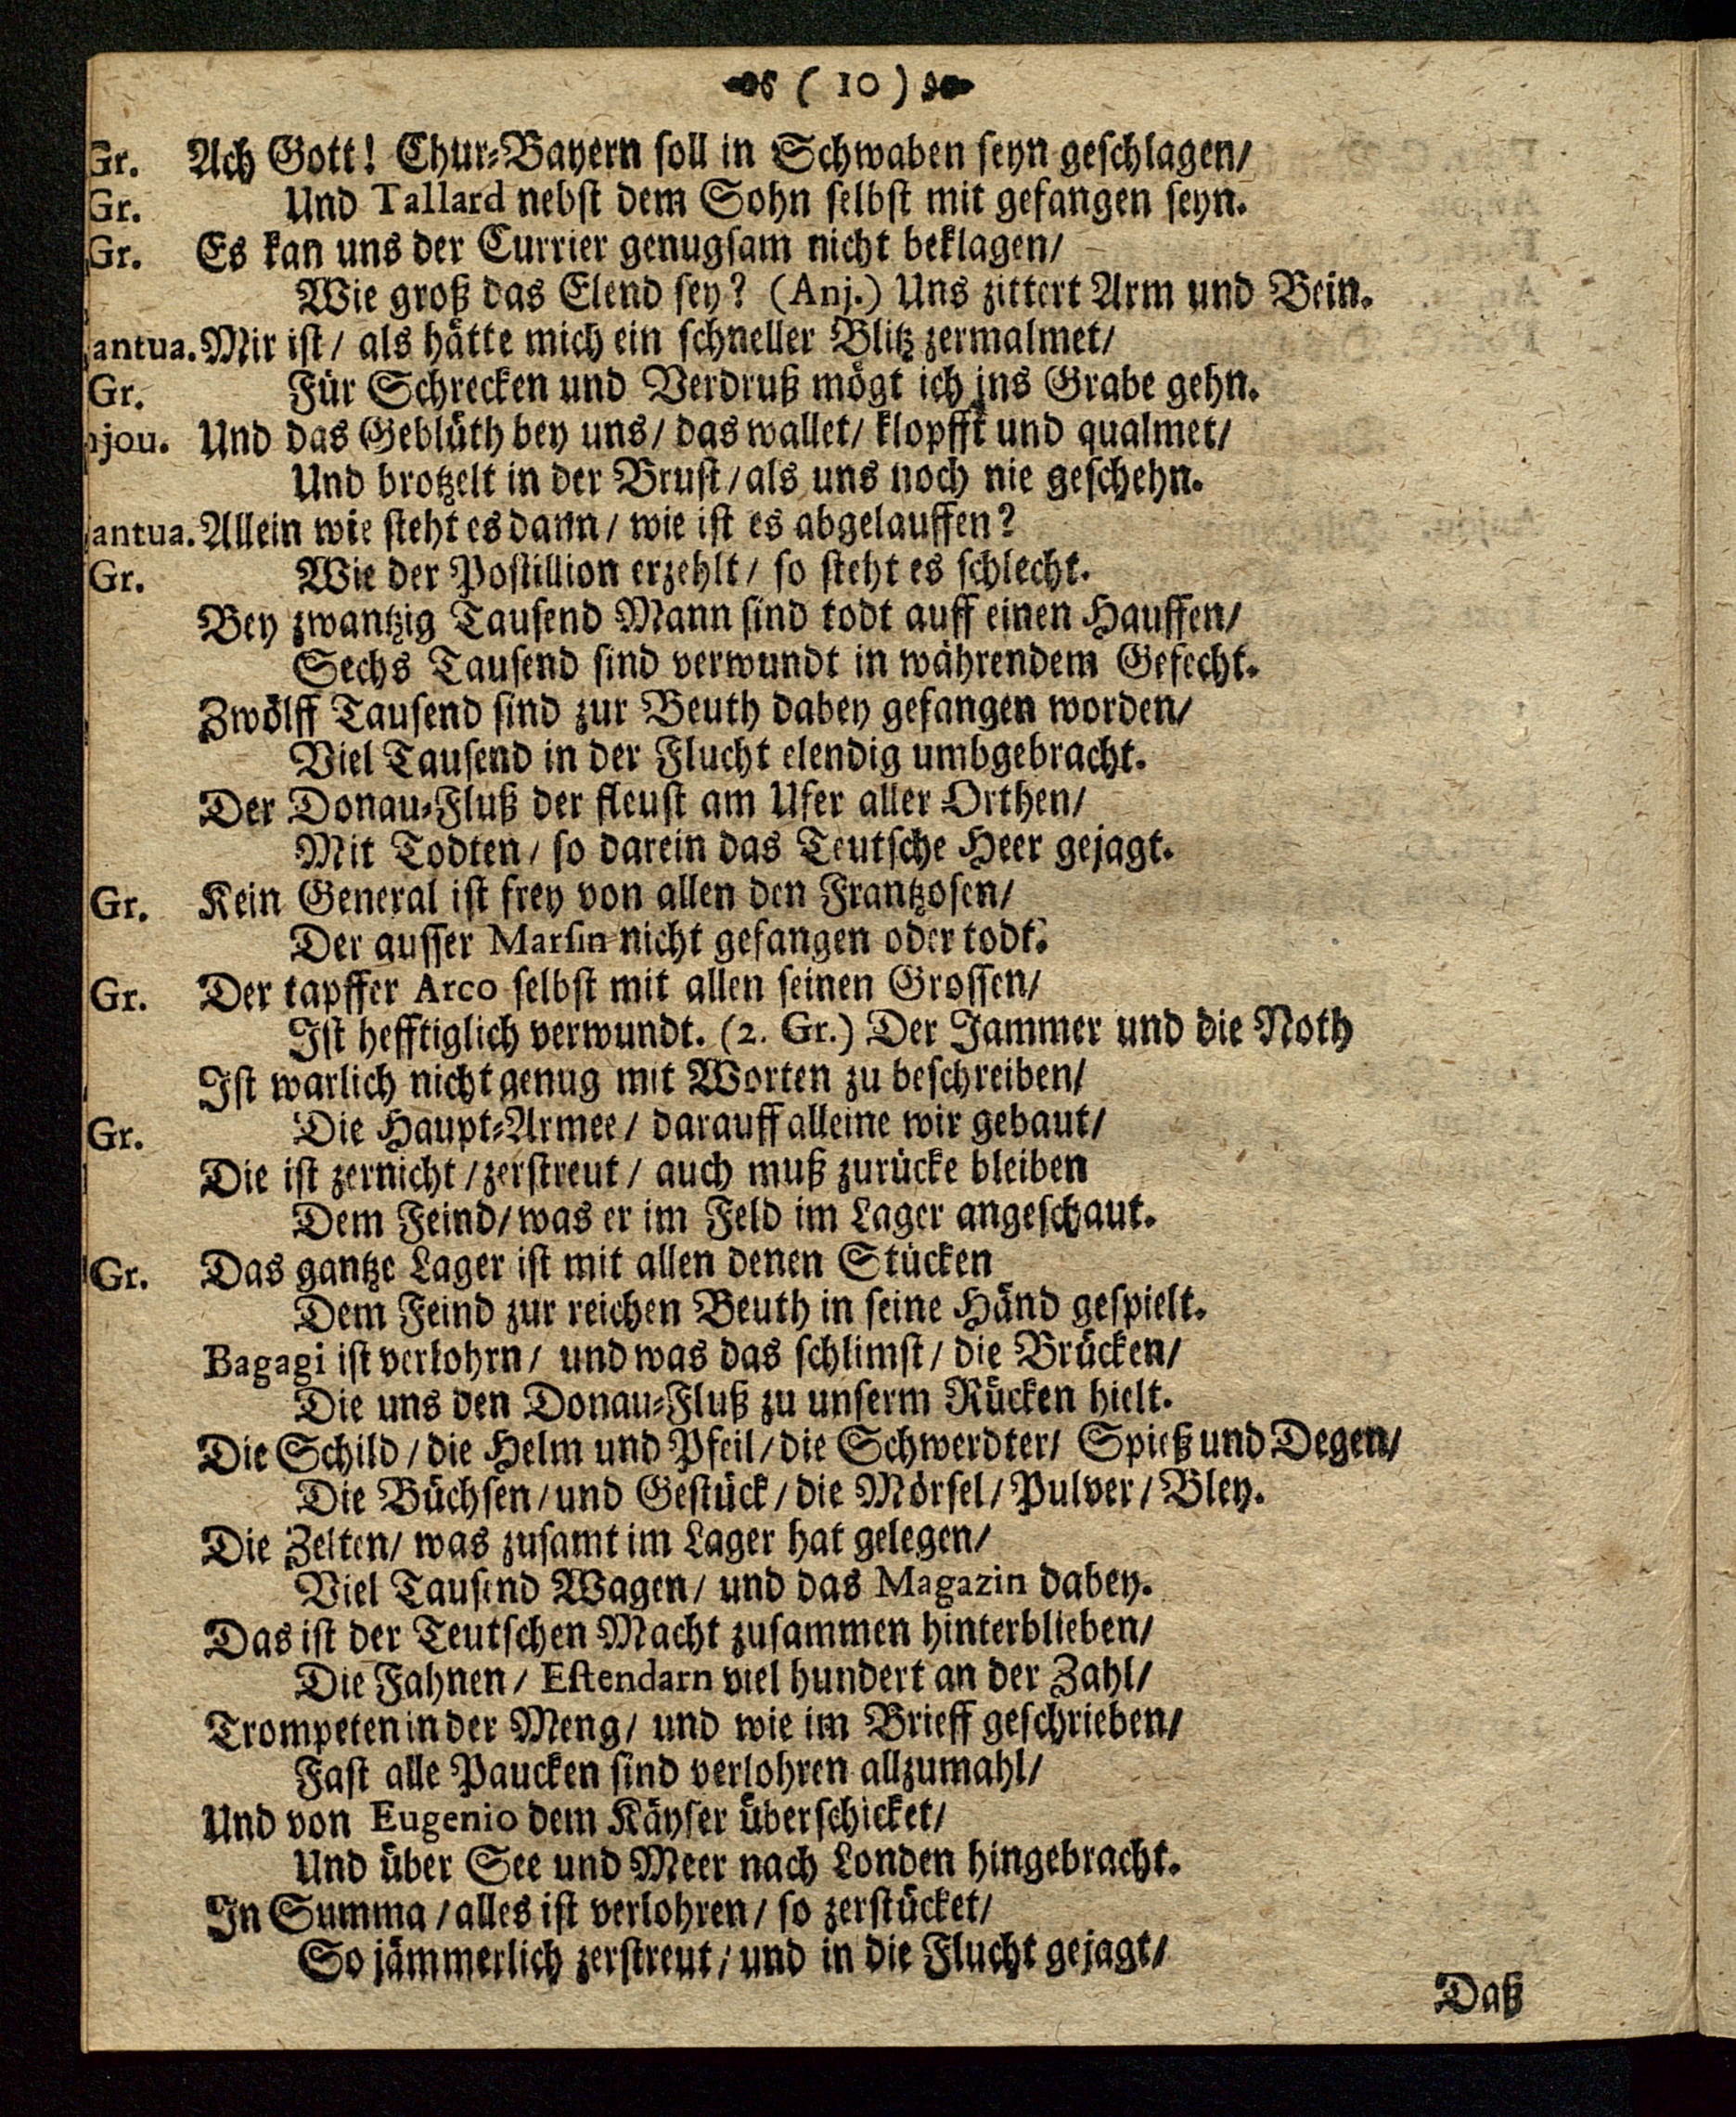 ( 10 )
Gr. Ach Gott! Chur-Bayern soll in Schwaben seyn geschlagen/
Gr. Und Tallard nebst dem Sohn selbst mit gefangen seyn.
Gr. Es kan uns der Currier genugsam nicht beklagen/
Wie groß das Elend sey? (Anj.) Uns zittert Arm und Bein.
antua. Mir ist/ als hätte mich ein schneller Blitz zermalmet/
Gr. Für Schrecken und Verdruß mögt ich ins Grabe gehn.
jou. Und das Geblüth bey uns/ das wallet/ klopfft und qualmet/
Und brotzelt in der Brust/ als uns noch nie geschehn.
antua. Allein wie steht es dann/ wie ist es abgelauffen?
Gr. Wie der Postillion erzehlt/ so steht es schlecht.
Bey zwantzig Tausend Mann sind todt auff einen Hauffen/
Sechs Tausend sind verwundt in währendem Gefecht.
Zwölff Tausend sind zur Beuth dabey gefangen worden/
Viel Tausend in der Flucht elendig umbgebracht.
Der Donau-Fluß der fleust am Ufer aller Orthen/
Mit Todten/ so darein das Teutsche Heer gejagt.
Gr. Kein General ist frey von allen den Frantzosen/
Der ausser Marsin nicht gefangen oder todt.
Gr. Der tapffer Arco selbst mit allen seinen Grossen/
Ist hefftiglich verwundt. (2. Gr.) Der Jammer und die Noth
Ist warlich nicht genug mit Worten zu beschreiben/
Gr. Die Haupt-Armee/ darauff alleine wir gebaut/
Die ist zernicht/ zerstreut/ auch muß zurücke bleiben
Dem Feind/ was er im Feld im Lager angeschaut.
Gr. Das gantze Lager ist mit allen denen Stücken
Dem Feind zur reichen Beuth in seine Händ gespielt.
Bagagi ist verlohrn/ und was das schlimst/ die Brücken/
Die uns den Donau-Fluß zu unserm Rücken hielt.
Die Schild/ die Helm und Pfeil/ die Schwerdter/ Spieß und Degen/
Die Büchsen/ und Gestück/ die Mörsel/ Pulver/ Bley.
Die Zelten/ was zusamt im Lager hat gelegen/
Viel Tausend Wagen/ und das Magazin dabey.
Das ist der Teutschen Macht zusammen hinterblieben/
Die Fahnen/ Estendarn viel hundert an der Zahl/
Trompeten in der Meng/ und wie im Brieff geschrieben/
Fast alle Paucken sind verlohren allzumahl/
Und von Eugenio dem Käyser überschicket/
Und über See und Meer nach Londen hingebracht.
In Summa/ alles ist verlohren/ so zerstücket/
So jämmerlich zerstreut/ und in die Flucht gejagt/
Daß